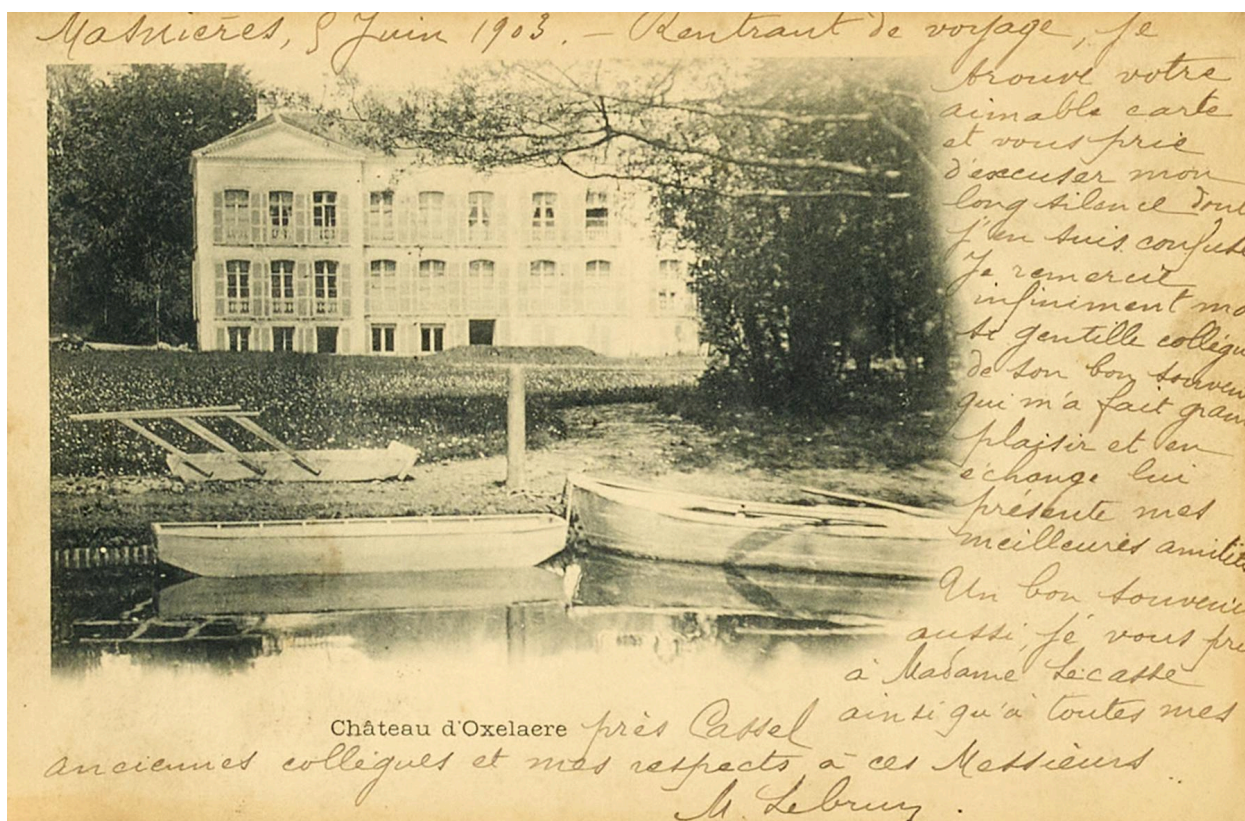 Masnières, 5 Juin 1903. – Rentrant de voyage, je
trouve votre
aimable carte
et vous prie
d'excuser mon
long silence dont
j'en suis confuse
Je remercie
infiniment ma
si gentille collègue
de son bon souvenir
qui m'a fait grand
plaisir et en
échange lui
présente mes
meilleures amitiés
Un bon souvenir
aussi, je vous prie
à Madame
ainsi qu'à toutes mes
Château d'Oxelaere près Cassel
anciennes collègues et mes respects à ces Messieurs
M. Lebrun.